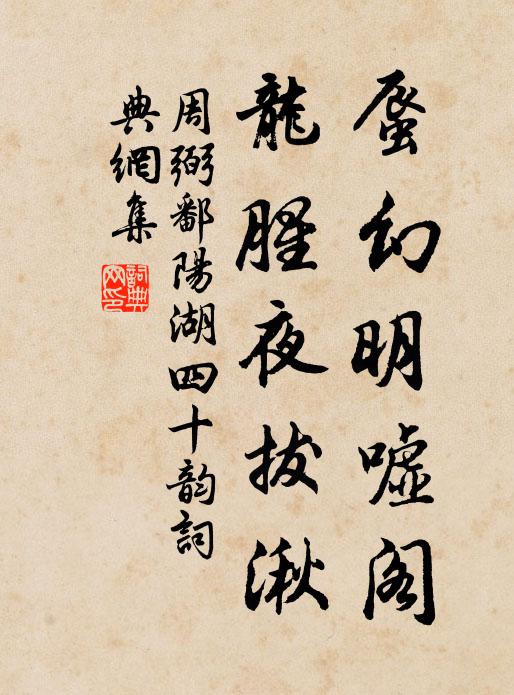 蜃幻明噓阁
龍腥夜拔湫
周弼鄱陽湖四十韵詞
典網集
詞典网印